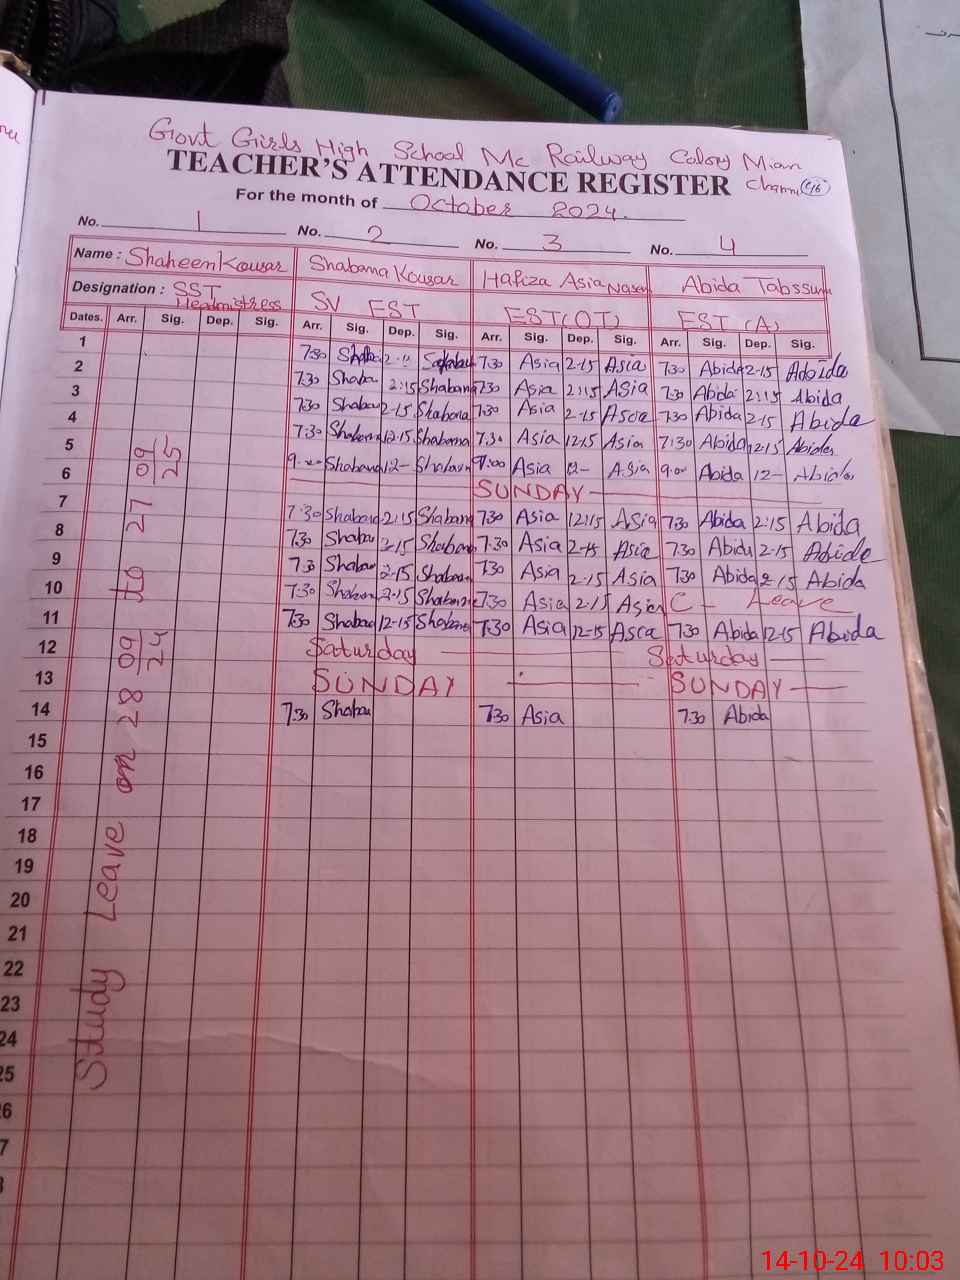 Govt Girls High School Mc Railway Colony Mian
Channu
TEACHER'S ATTENDANCE REGISTER
For the month of October 2024.
No. 1 No. 2 No. 3 No. 4
Name : Shaheen Kousar Shabana Kousar Hafiza Asia Abida
Designation : SST SV EST EST(OT) EST (A)
Dates. Arr. Sig. Dep. Sig. Arr. Sig. Dep. Sig. Arr. Sig. Dep. Sig. Arr. Sig. Dep. Sig.
1 7:30 7:30 Asia 2-15 Asia 7:30 Abida 2-15 Abida
2 7:30 Shaba 2:15 Shabana 7:30 Asia 2:15 Asia 7:30 Abida 2:15 Abida
3 7:30 2-15 Shabana 7:30 Asia 2-15 Asia 7:30 Abida 2-15 Abida
4 7:30 12-15 Shabana 7:30 Asia 12-15 Asia 7:30 Abida 12-15 Abida
5 9:00 Shabana 12- 9:00 Asia 12- Asia 9:00 Abida 12- Abida
6 SUNDAY
7 7:30 Shabana 2:15 Shabana 7:30 Asia 12:15 Asia 7:30 Abida 2:15 Abida
8 7:30 Shaba 2-15 Shabana 7:30 Asia 2-15 Asia 7:30 Abida 2-15 Abida
9 7:30 Shaba 2-15 Shabana 7:30 Asia 2-15 Asia 7:30 Abida 2-15 Abida
10 7:30 2-15 7:30 Asia 2-15 Asia C- Leave
11 7:30 Shaba 12-15 Shabana 7:30 Asia 12-15 Asia 7:30 Abida 12-15 Abida
12 Saturday Saturday
13 SUNDAY SUNDAY
14 7:30 Shaba 7:30 Asia 7:30 Abida
15
16
17
18
19
20
21
22
23
24
25
26
Study Leave on 28 09 24 to 27 09 25
14-10-24 10:03